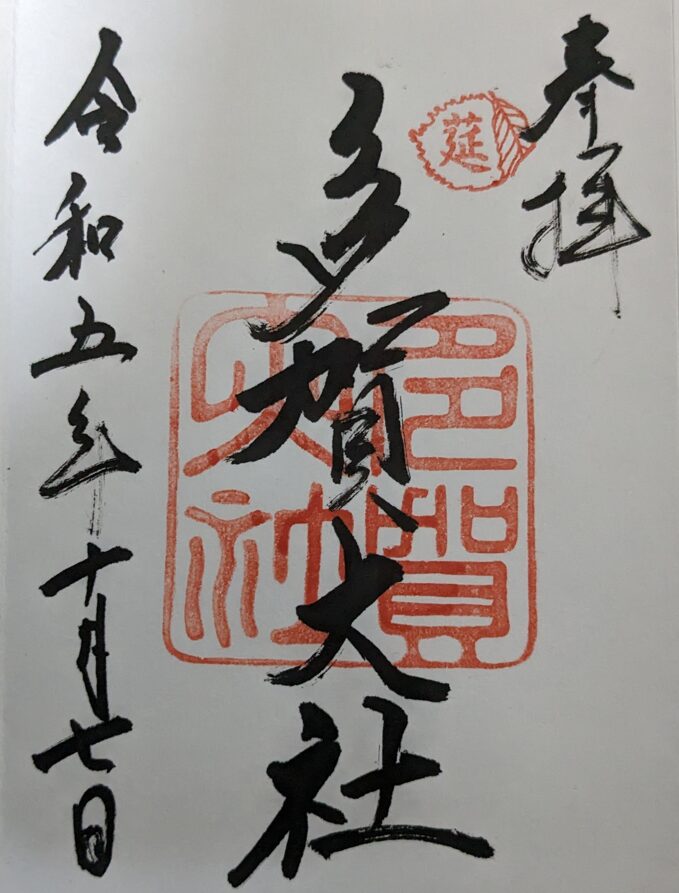 奉拝
莚
多賀大社
多賀大社
令和五年十月七日